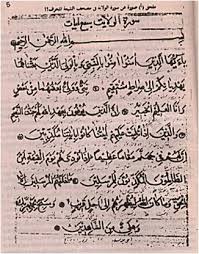 5
صورة عن سورة الولاية في مصحف الشيعة المحرف!!
سورة الولاية سبع آيات
بسم الله الرحمن الرحيم
يا ايها الذين آمنوا آمنوا بالنبي وبالولي الذين
بعثناهما يهديانكم الى صراط مستقيم نبي وولي بعضهما من بعض
وانا العليم الخبير ان الذين يوفون بعهد الله لهم جنات النعيم
والذين اذا تليت عليهم آياتنا كانوا بآياتنا مكذبين ان
لهم في جهنم مقاما عظيما اذا نودي لهم يوم القيمة اين الظالمون
المكذبون للمرسلين ما خلفهم المرسلين الا
بالحق وما كان الله ليظهرهم الى اجل قريب وسبح بحمد ربك
وعلي من الشاهدين